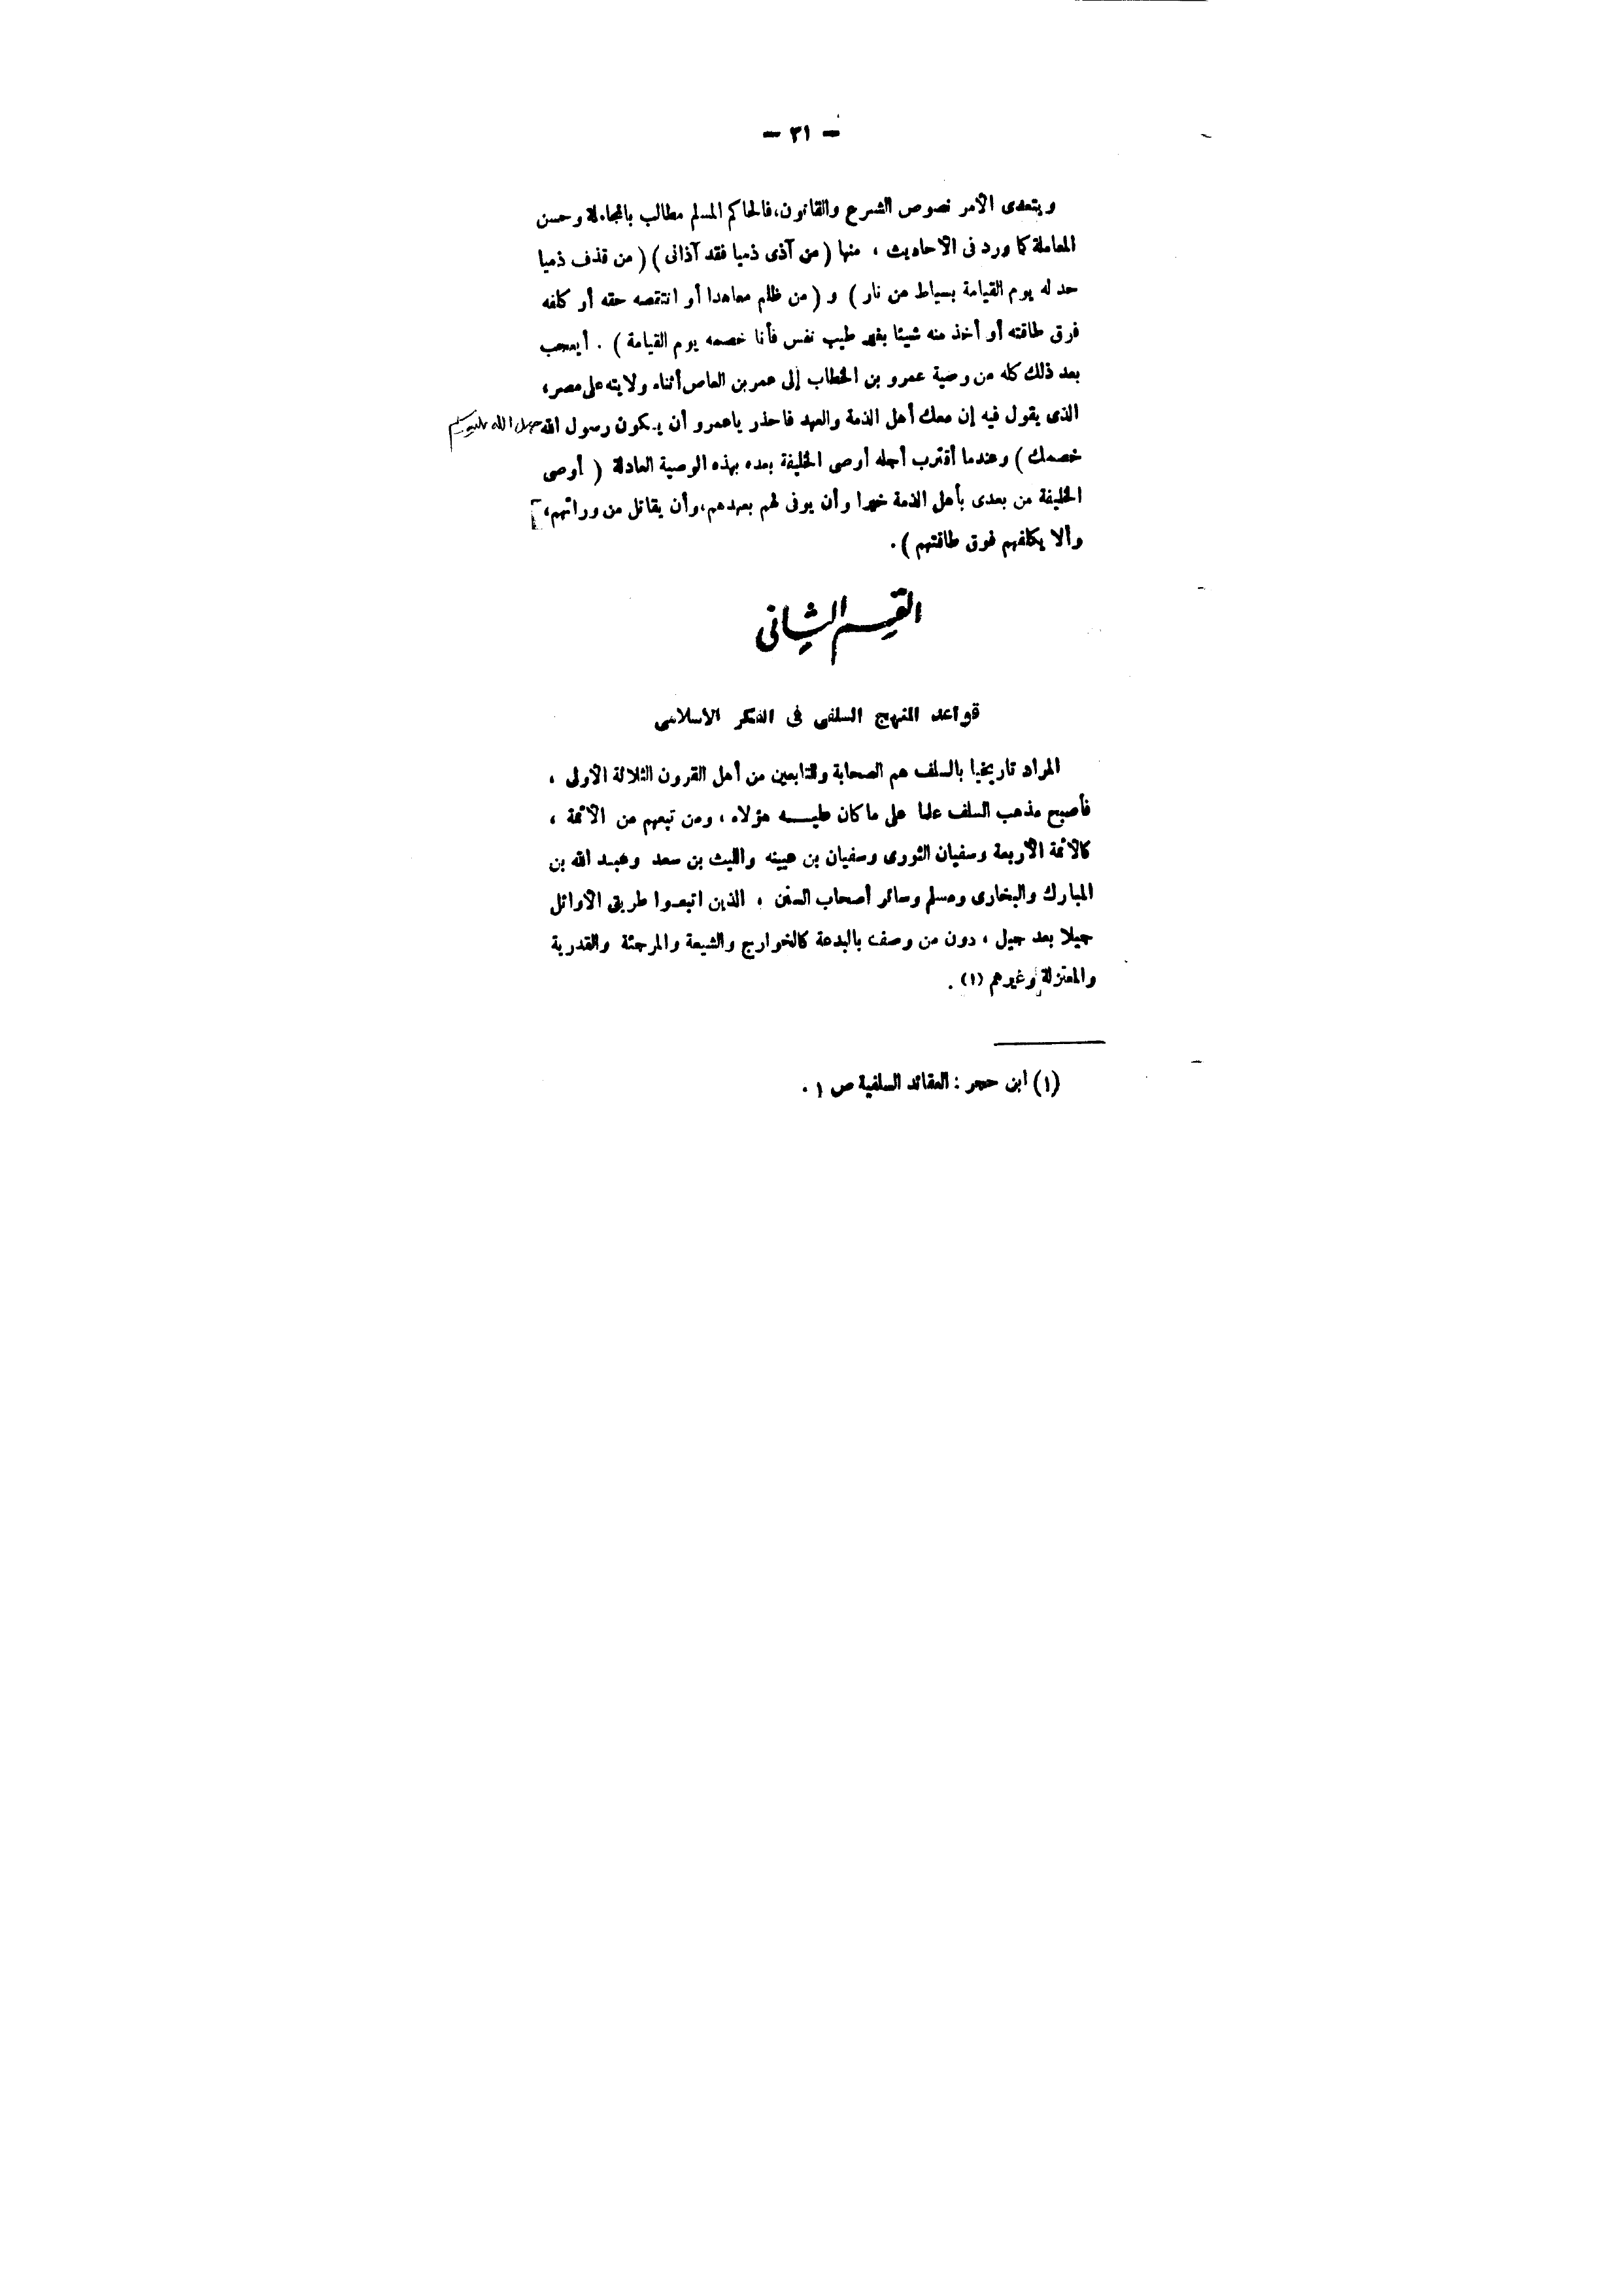 — ٢١ —
ويتعدى الأمر نصوص الشرع والقانون، فالحاكم المسلم مطالب بالمجاملة وحسن
المعاملة كما ورد فى الأحاديث ، منها ( من آذى ذميا فقد آذانى ) ( من قذف ذميا
حد له يوم القيامة بسياط من نار ) و ( من ظلم معاهدا أو انتقصه حقه أو كلفه
فوق طاقته أو أخذ منه شيئا بغير طيب نفس فأنا خصمه يوم القيامة ) . أيعجب
بعد ذلك كله من وصية عمرو بن الخطاب إلى عمر بن العاص أثناء ولايته على مصر،
الذى يقول فيه إن معك أهل الذمة والعهد فاحذر ياعمرو أن يكون رسول الله صلى الله عليه وسلم
خصمك ) وعندما أقترب أجله أوصى الخليفة بعده بهذه الوصية العادلة ( أوصى
الخليفة من بعدى بأهل الذمة خيرا وأن يوفى لهم بعهدهم، وأن يقاتل من ورائهم،
وألا يكلفهم فوق طاقتهم ) .
القسم الثانى
قواعد المنهج السلفى فى الفكر الاسلامى
المراد تاريخيا بالسلف هم الصحابة والتابعين من أهل القرون الثلاثة الأولى ،
فأصبح مذهب السلف علما على ما كان عليه هؤلاء ، ومن تبعهم من الأئمة ،
كالأئمة الأربعة وسفيان الثورى وسفيان بن عيينه والليث بن سعد وعبد الله بن
المبارك والبخارى ومسلم وسائر أصحاب السنن ، الذين اتبعوا طريق الأوائل
جيلا بعد جيل ، دون من وصف بالبدعة كالخوارج والشيعة والمرجئة والقدرية
والمعتزلة وغيرهم (١) .
(١) ابن حجر : العقائد السلفية ص ١ .